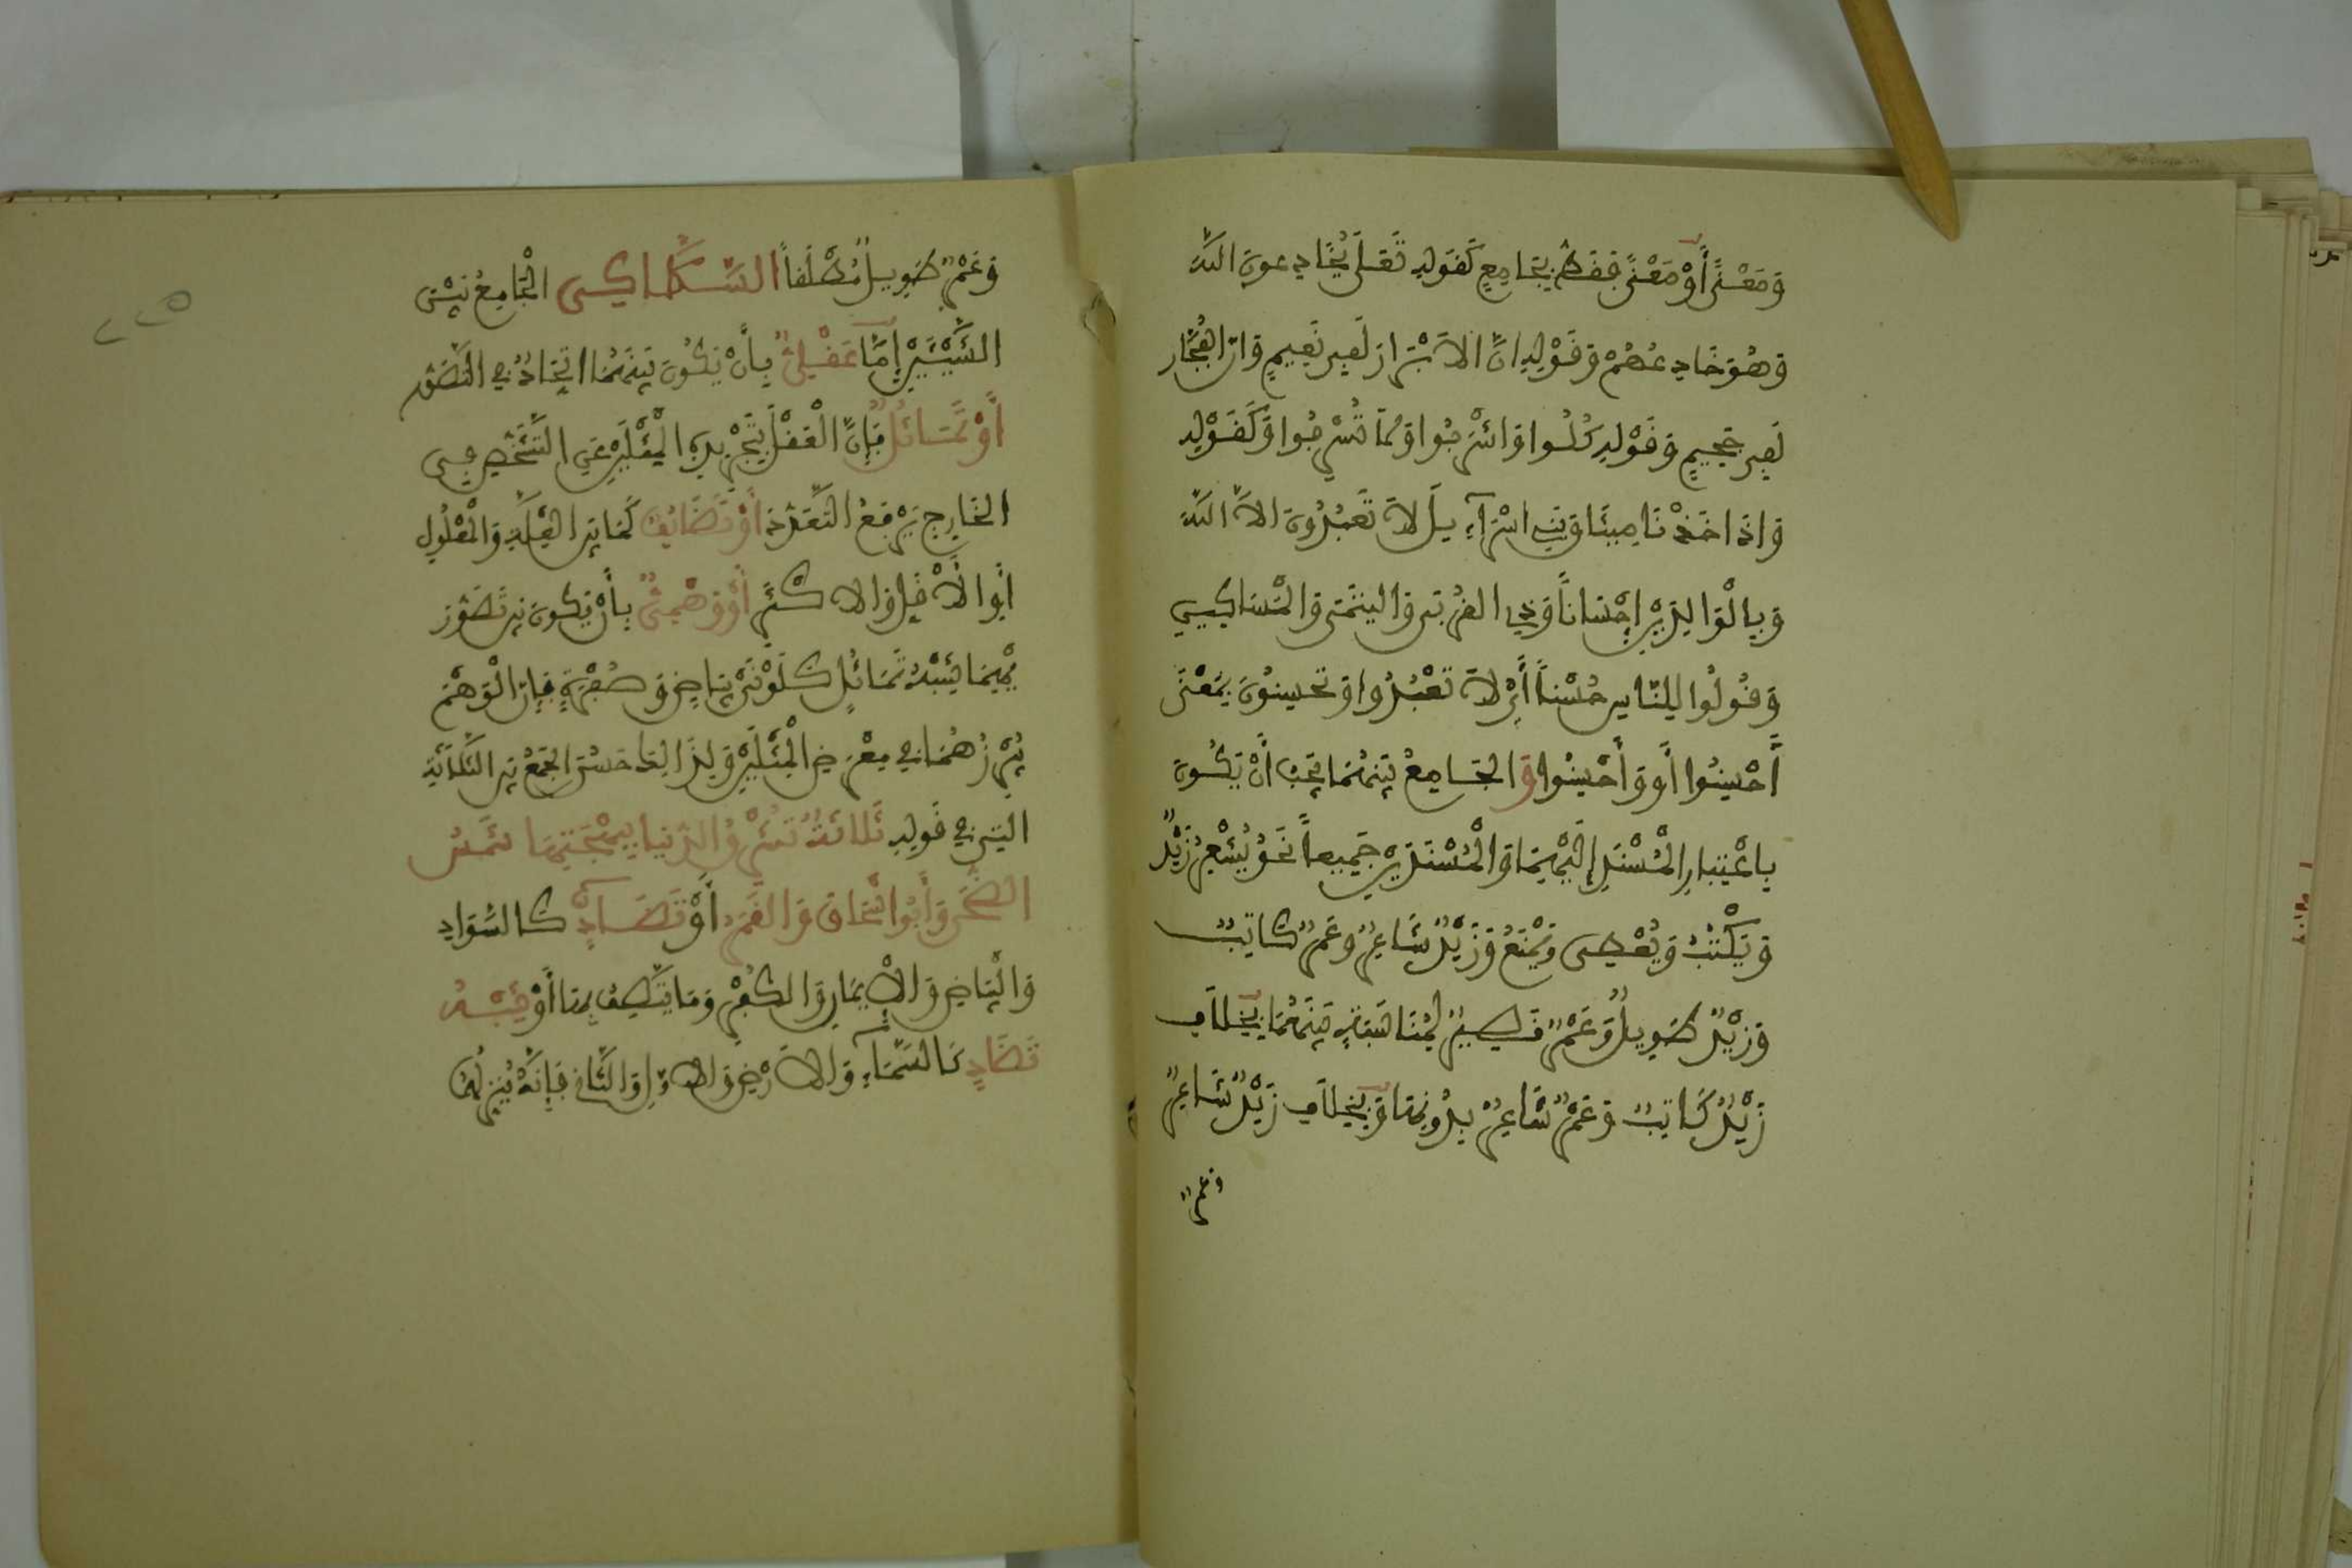 وَمَعْنًى أَوْ مَعْنًى فَقَطْ بِجَامِعٍ كَقَوْلِهِ تَعَلَى يُخَادِعونَ اللَّهَ
وَهُوَ خَادِعُهُمْ وَقَوْلِهِ انَّ الاَبْرَارَ لَفِى نَعِيمٍ وَانَّ الفُجَّارَ
لَفِى جَحِيمٍ وَقَوْلِهِ كُلُوا وَاشْرَبُوا وَلاَ تُسْرِفُوا وَكَقَوْلِهِ
وَاذَ اخَذْنَا مِيثَاقَ بَنِى اسْرَآءِيلَ لاَ تَعْبُدُونَ الاَّ اللَّهَ
وَبِالْوَالِدَيْنِ إِحْسَاناً وَذِى الْقُرْبَى وَالْيَتَمَى وَالْمَسَاكِينِ
وَقُولُوا لِلنَّاسِ حُسْناً أَىْ لاَ تَعْبُدُوا وَتُحْسِنُونَ بِمَعْنَى
أَحْسِنُوا أَوْ وَأَحْسِنُوا وَالجَامِعُ بَيْنَهُمَا يَجِبُ أَنْ يَكُونَ
بِاعْتِبَارِ الْمُسْنَدِ إِلَيْهِمَا وَالْمُسْنَدَيْنِ جَمِيعاً نَحْوُ يُشْعِرُ زَيْدٌ
وَيَكْتُبُ وَيُعْطِى وَيَمْنَعُ وَزَيْدٌ شَاعِرٌ وعَمْرٌ كَاتِبٌ
وَزَيْدٌ طَوِيلٌ وَعَمْرٌ قَصِيرٌ لِمُنَاسَبَةٍ بَيْنَهُمَا بِخِلاَفِ
زَيْدٌ كَاتِبٌ وَعَمْرٌ شَاعِرٌ بِدُونِهَا وَبِخِلاَفِ زَيْدٌ شَاعِرٌ
وعمرٌ
وَعَمْرٌ طَوِيلٌ مُطْلَقاً السَّكَّاكِى الْجَامِعُ بَيْنَ
الشَّيْئَيْنِ إِمَّا عَقْلِىٌّ بِأَنْ يَكُونَ بَيْنَهُمَا اتِّحَادٌ فِى التَّصَوُّرِ
أَوْ تَمَاثُلٌ فَإِنَّ الْعَقْلَ بِتَجْرِيدِهِ الْمِثْلَيْنِ عَنِ التَّشَخُّصِ فِى
الْخَارِجِ يَرْفَعُ التَّعَدُّدَ أَوْ تَضَايُفٌ كَمَا بَيْنَ العِلَّةِ وَالْمَعْلُولِ
أَوِ الأَقَلِّ وَالاَكْثَرِ أَوْ وَهْمِىٌّ بِأَنْ يَكُونَ بَيْنَ تَصَوُّرَ
يْهِمَا شِبْهُ تَمَاثُلٍ كَلَوْنَىْ بَيَاضٍ وَصُفْرَةٍ فَإِنَّ الْوَهْمَ
يُبْرِزُهُمَا فِى مَعْرِضِ الْمِثْلَيْنِ وَلِذَالِكَ حَسُنَ الجَمْعُ بَيْنَ الثَّلاَثَةِ
الَّتِى فِى قَولِهِ ثَلاَثَةٌ تُشْرِقُ الدُّنْيَا بِبَهْجَتِهَا شَمْسُ
الضُّحَى وَأَبُوا إِسْحَاقَ وَالقَمَرُ أَوْ تَضَآدٍّ كَالسَّوَادِ
وَالْبَيَاضِ وَالاِيمَانِ وَالكُفْرِ وَمَا يَتَّصِفُ بِهَا أَوْ شِبْهُ
تَضَادٍّ كَالسَّمَآءِ وَالاَرْضِ وَالاَوَّلِ وَالثَّانِى فَإِنَّهُ يُنْزِلُهُمَا
٢٢٥